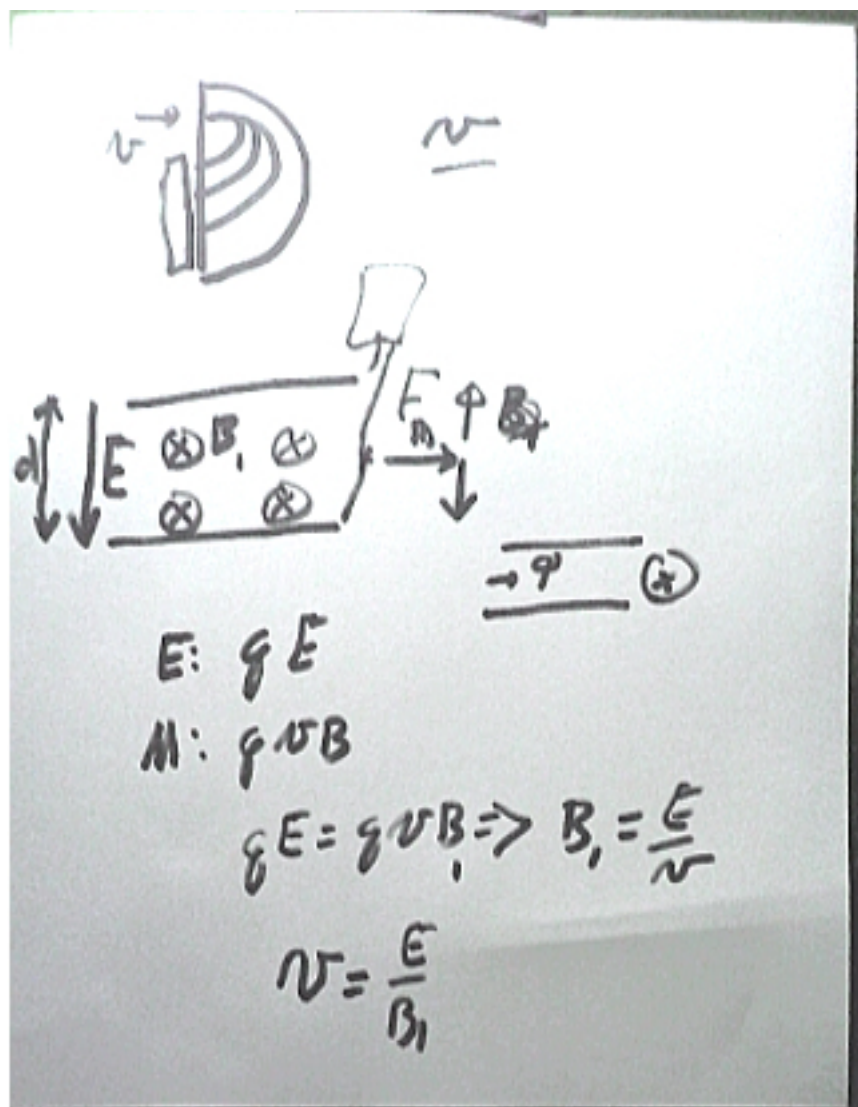 v → v
d E ⊗ B₁ ⊗ F ↑
m
⊗ ⊗
→ q ⊗
E: qE
M: qvB
qE = qvB₁ => B₁ = E/v
v = E/B₁